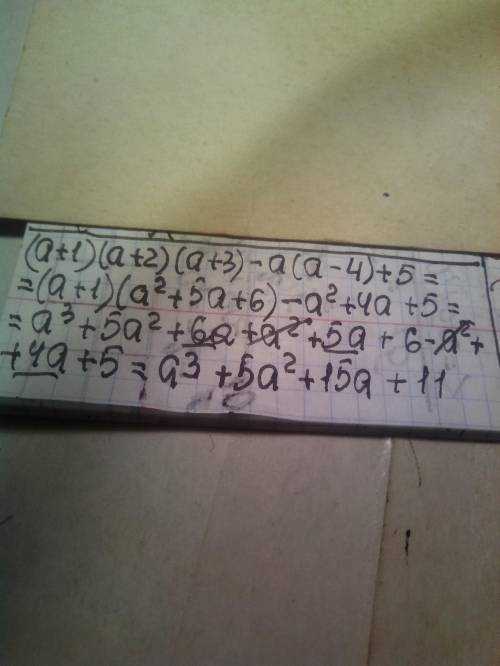 (a+1)(a+2)(a+3)-a(a-4)+5=
=(a+1)(a²+5a+6)-a²+4a+5=
=a³+5a²+6a+a²+5a+6-a²+
+4a+5=a³+5a²+15a+11